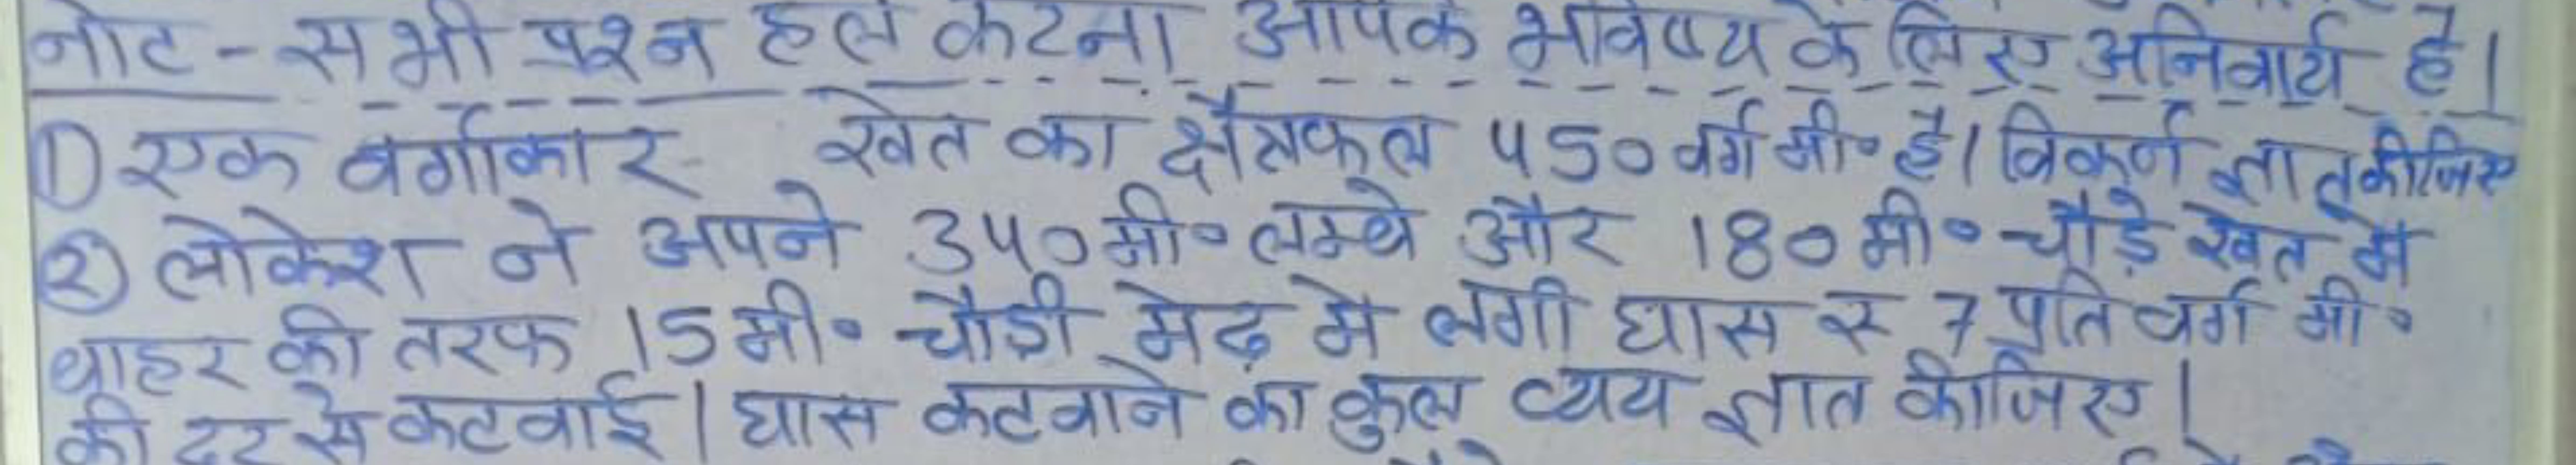 नोट - सभी प्रश्न हल करना आपके भविष्य के लिए अनिवार्य है।
① एक वर्गाकार खेत का क्षेत्रफल 450 वर्ग मी० है। विकर्ण ज्ञात कीजिए
② लोकेश ने अपने 340 मी० लम्बे और 180 मी० चौड़े खेत में
बाहर की तरफ 15 मी० चौड़ी मेढ़ मे लगी घास रु 7 प्रति वर्ग मी०
की दर से कटवाई। घास कटवाने का कुल व्यय ज्ञात कीजिए।